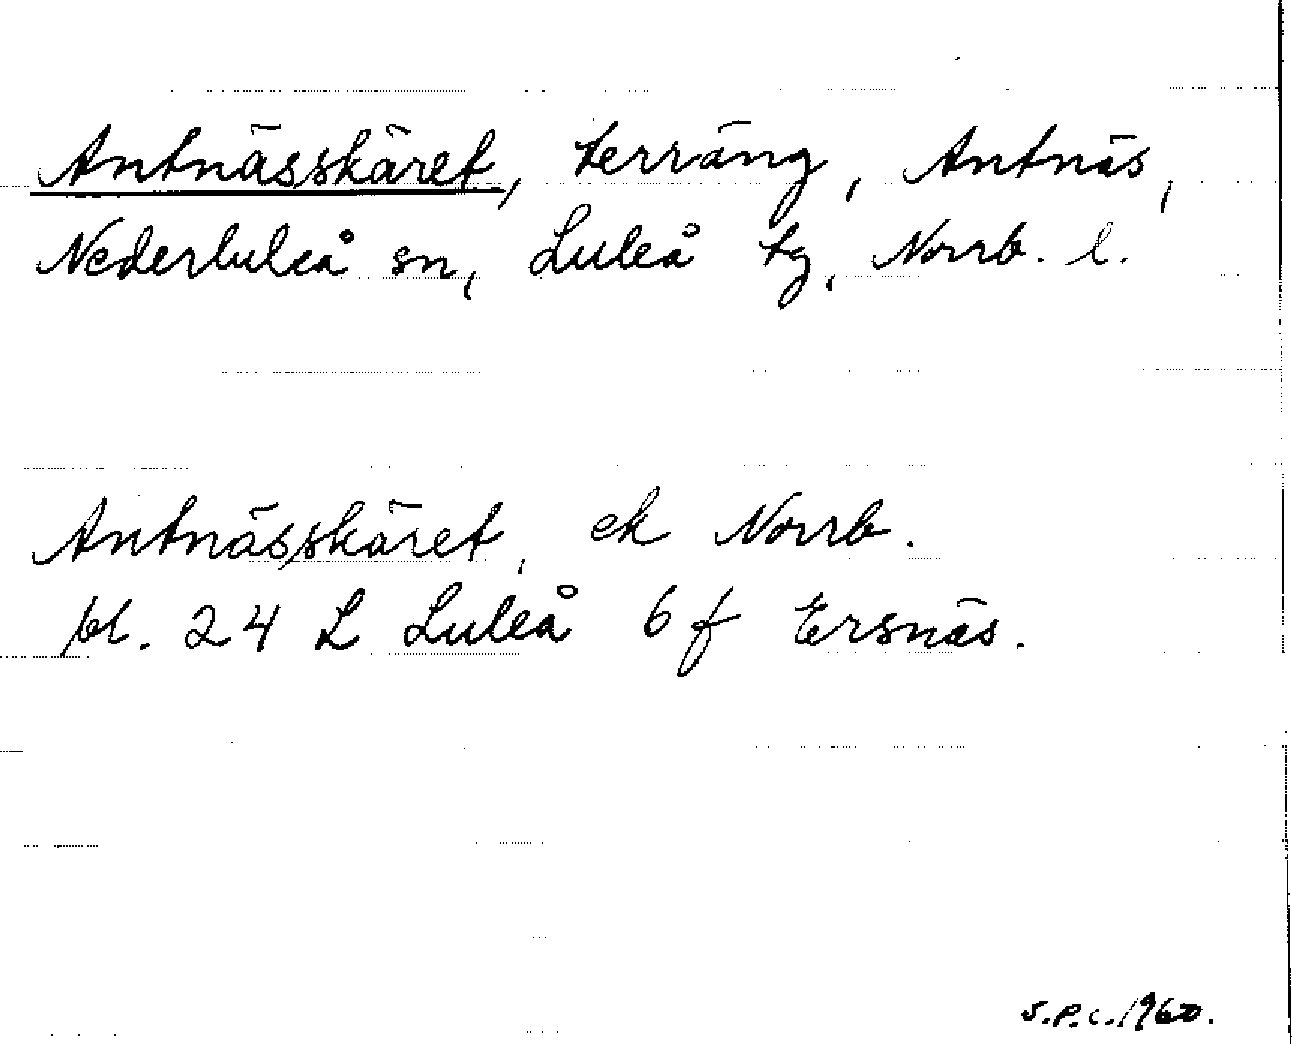 Antnässkäret, terräng, Antnäs,
Nederluleå sn, Luleå tg, Norrb. l.
Antnäs/skäret, ek Norrb.
bl. 24 L Luleå 6 f Ersnäs.
S.P.C. 1960.